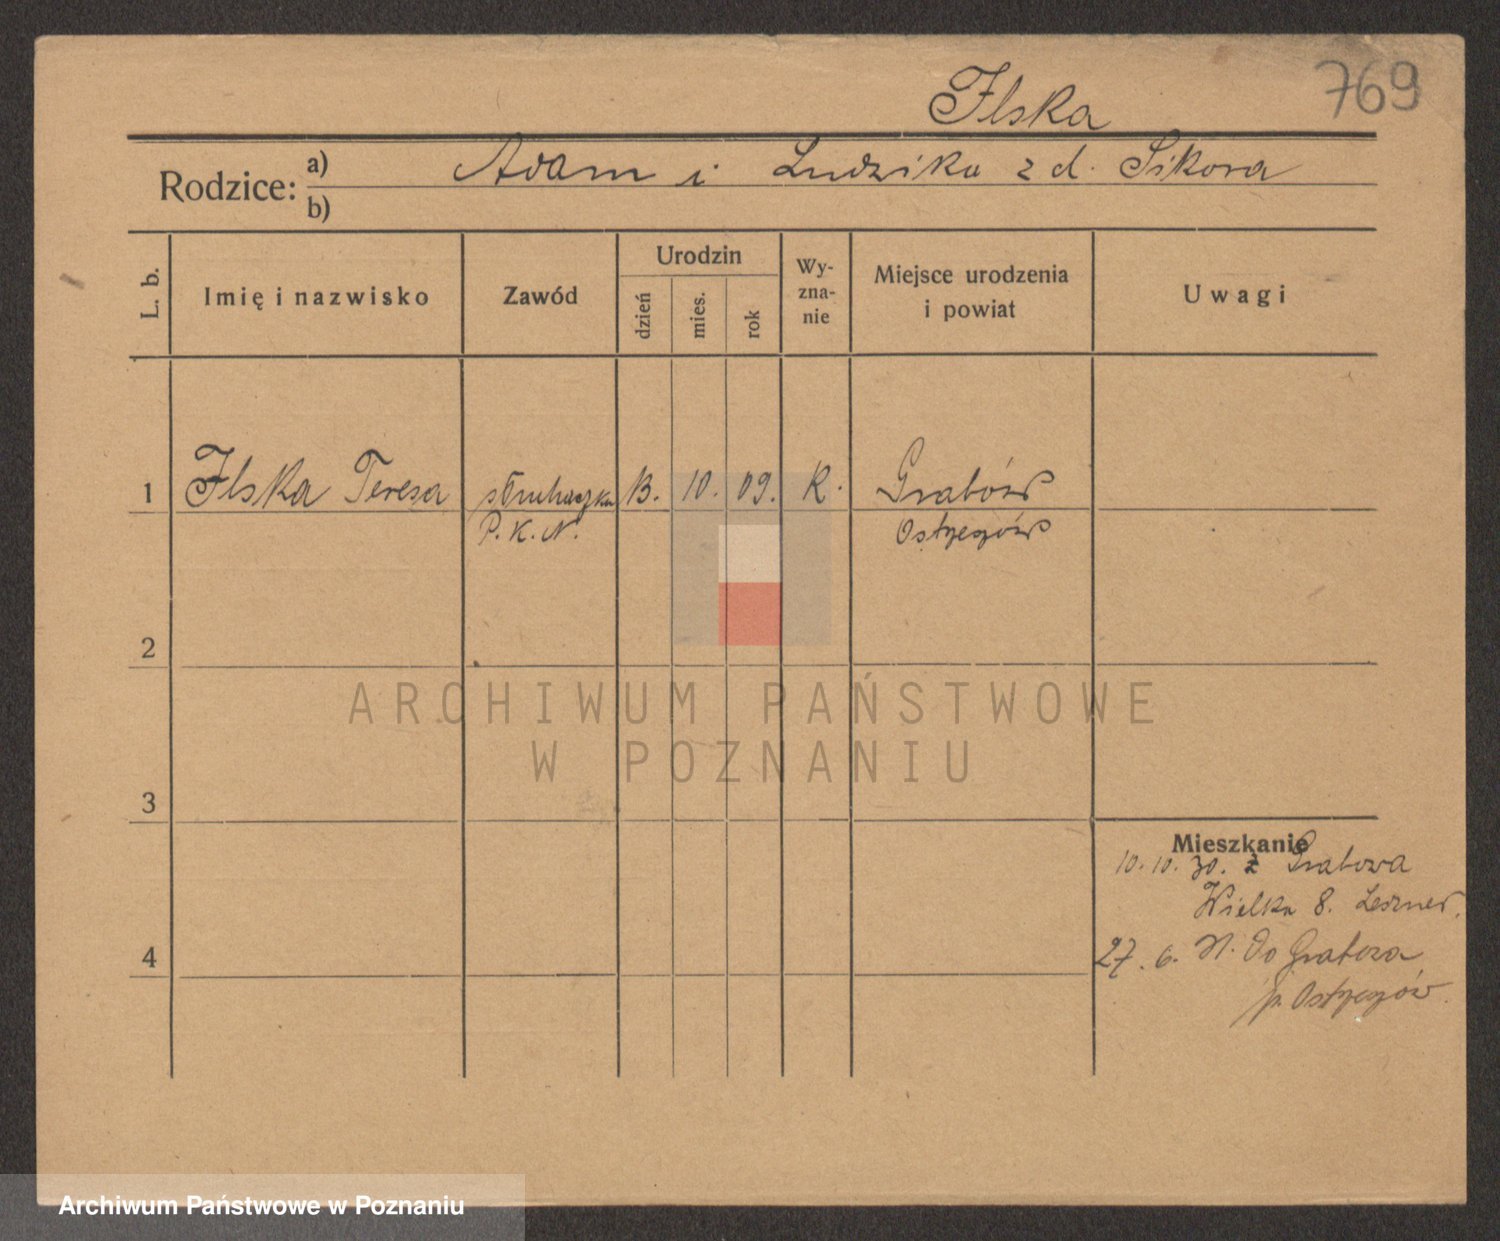 769
Ilska
Rodzice: a) Adam i Ludwika z d. Sikora
b)
L. b.
Imię i nazwisko
Zawód
Urodzin
dzień
mies.
rok
Wy-
zna-
nie
Miejsce urodzenia
i powiat
Uwagi
1 Ilska Teresa słuchaczka 13. 10. 09. R. Grabów
P. K. N. Ostrzeszów
2
3
4
Mieszkanie
10.10. 30. z Grabowa
Wielka 8.
27. 6. do Grabowa
p. Ostrzeszów
ARCHIWUM PAŃSTWOWE
W POZNANIU
Archiwum Państwowe w Poznaniu